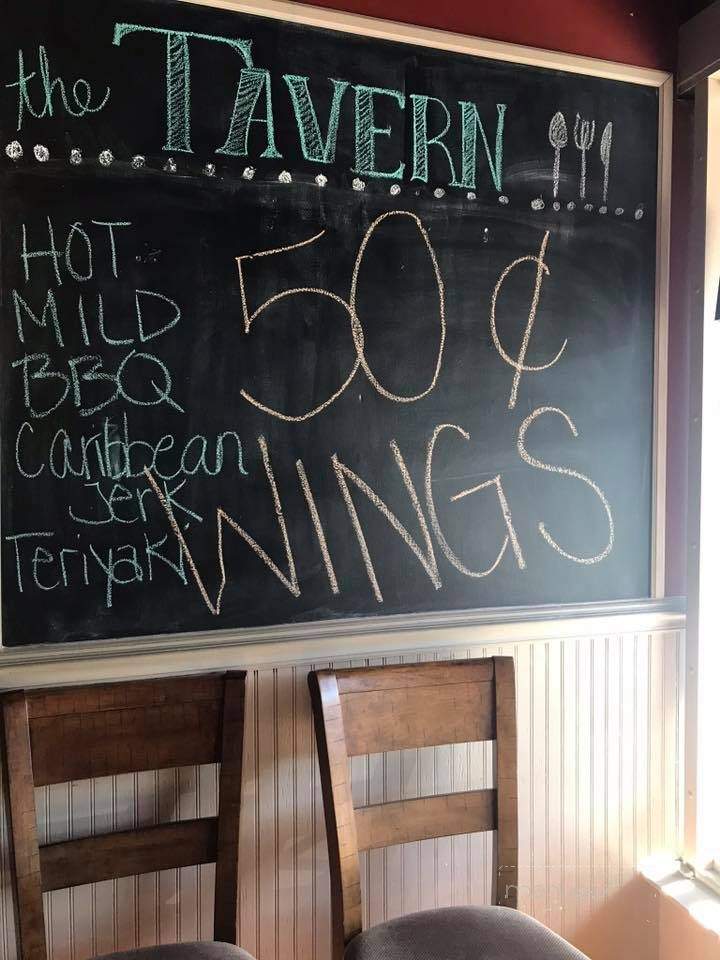 the TAVERN
HOT
MILD
BBQ
Caribbean
Jerk
Teriyaki
50¢
WINGS